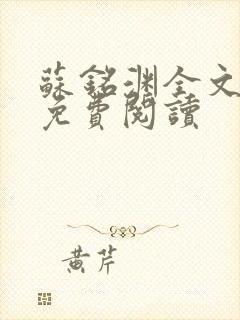 蘇銘渊全文
免費閱讀
黄芹